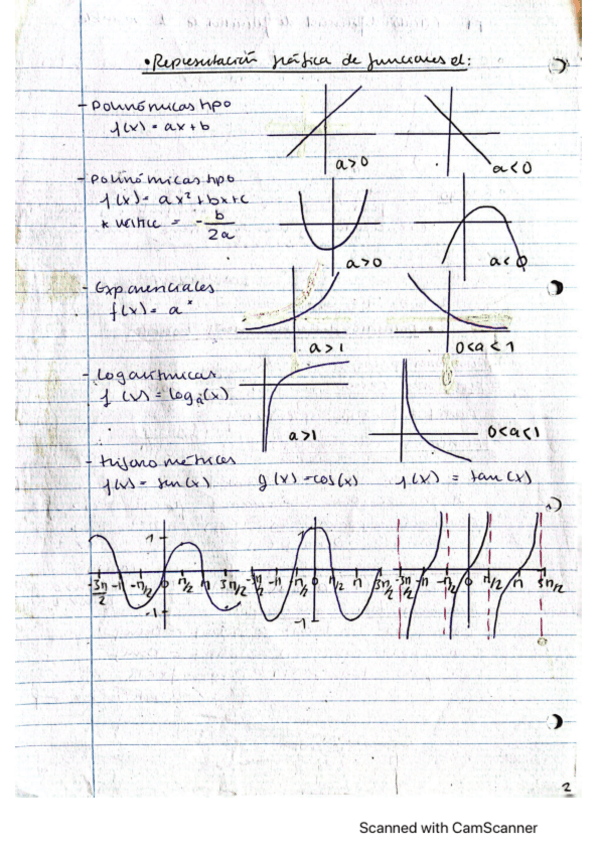 • Representación gráfica de funciones el:
- Polinómicas tipo
f(x) = ax+b
a>0
a<0
- Polinómicas tipo
f(x) = ax²+bx+c
* vértice = -b/2a
a>0
a<0
- Exponenciales
f(x) = aˣ
a>1
0<a<1
- Logarítmicas
f(x) = logₐ(x)
a>1
0<a<1
- trigonométricas
f(x) = sen(x) g(x) = cos(x) f(x) = tan(x)
1
-3π/2 -π -π/2 0 π/2 π 3π/2
-1
1
-3π/2 -π -π/2 0 π/2 π 3π/2
-1
-3π/2 -π -π/2 0 π/2 π 3π/2
2
Scanned with CamScanner